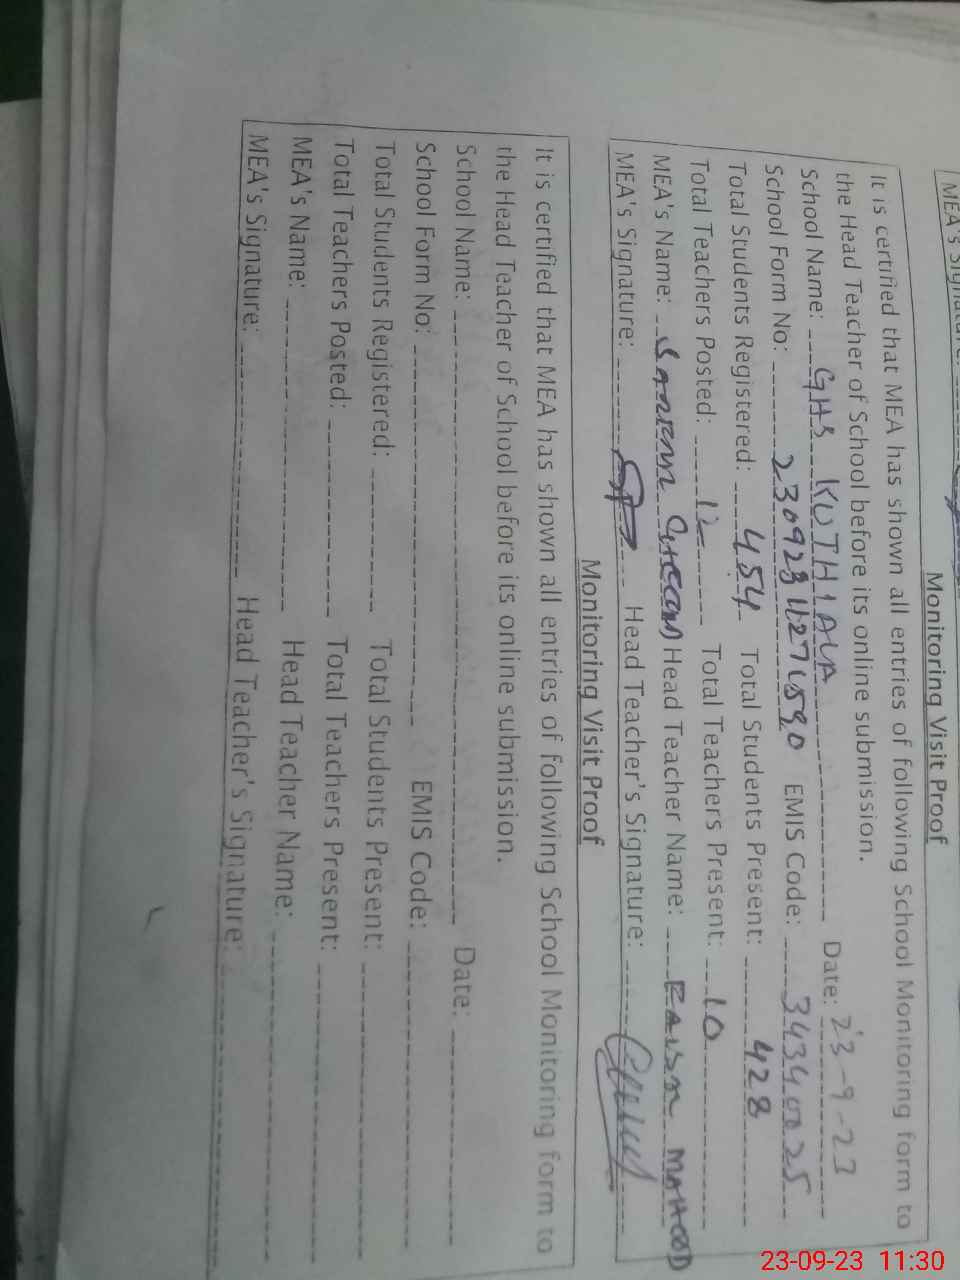 MEA's Signature:
Monitoring Visit Proof
It is certified that MEA has shown all entries of following School Monitoring form to
the Head Teacher of School before its online submission.
School Name: GHS KOTHIALA Date: 23-9-23
School Form No: EMIS Code: 34340025
Total Students Registered: 454 Total Students Present: 428
Total Teachers Posted: 12 Total Teachers Present: 10
MEA's Name: Head Teacher Name:
MEA's Signature: Head Teacher's Signature:
Monitoring Visit Proof
It is certified that MEA has shown all entries of following School Monitoring form to
the Head Teacher of School before its online submission.
School Name: Date:
School Form No: EMIS Code:
Total Students Registered: Total Students Present:
Total Teachers Posted: Total Teachers Present:
MEA's Name: Head Teacher Name:
MEA's Signature: Head Teacher's Signature:
23-09-23 11:30